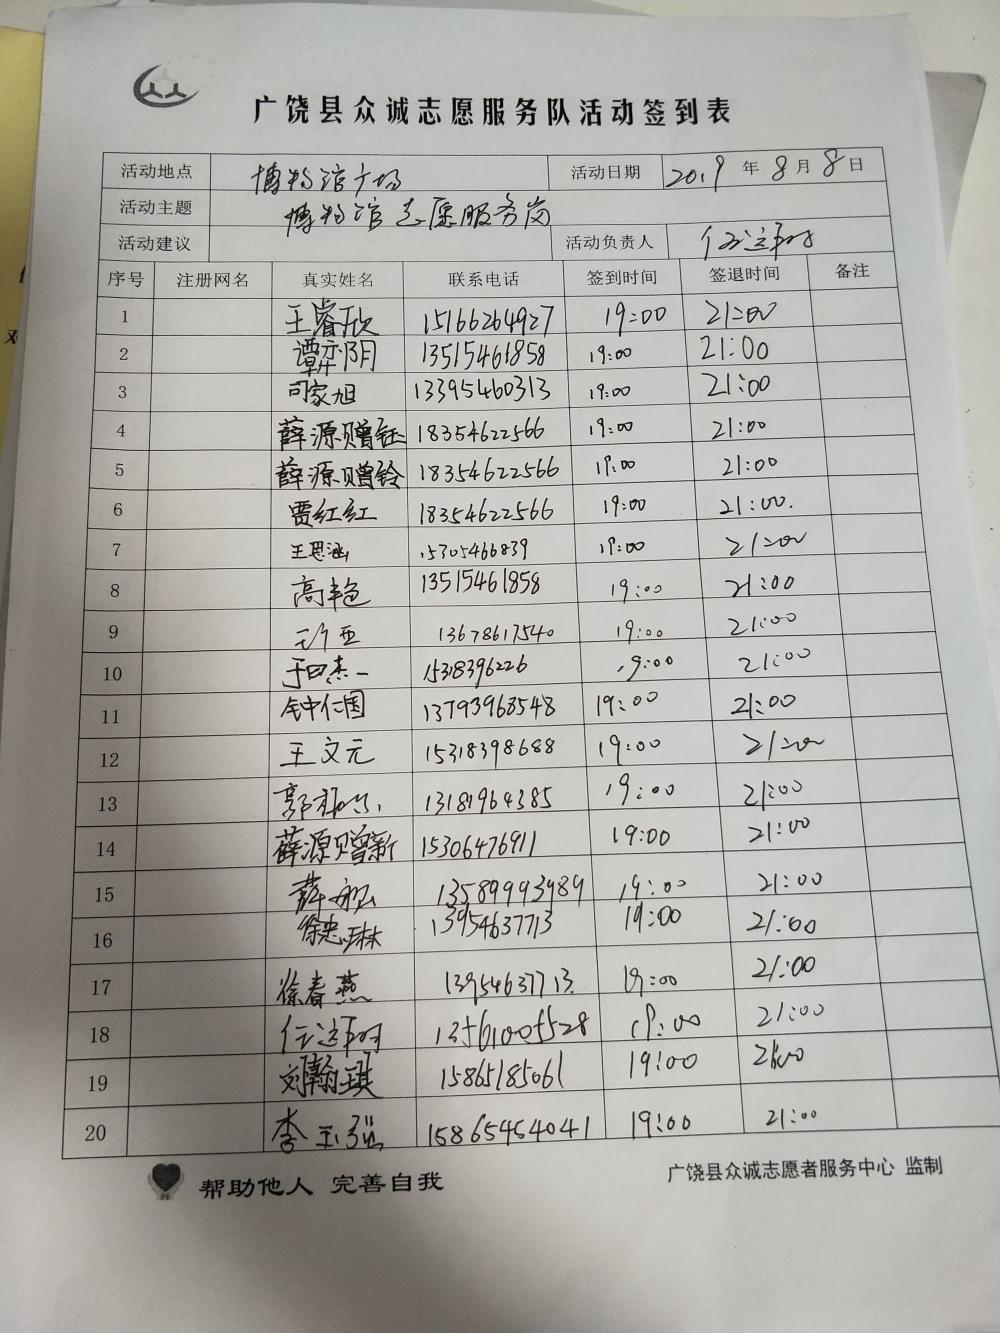 广饶县众诚志愿服务队活动签到表
活动地点 博物馆广场 活动日期 2019 年 8 月 8 日
活动主题 博物馆志愿服务岗
活动建议 活动负责人
序号 注册网名 真实姓名 联系电话 签到时间 签退时间 备注
1 王睿欣 15166264927 19:00 21:00
2 谭弈阴 13515461858 19:00 21:00
3 司家旭 13395460313 19:00 21:00
4 薛源赠钰 18354622566 19:00 21:00
5 薛源赠铃 18354622566 19:00 21:00
6 贾红红 18354622566 19:00 21:00.
7 王思涵 15305466839 19:00 21:00
8 高丰色 13515461858 19:00 21:00
9 13678617540 19:00 21:00
10 15318396226 19:00 21:00
11 钟仁国 13793963548 19:00 21:00
12 王文元 15318398688 19:00 21:00
13 13181964385 19:00 21:00
14 薛源赠新 15306476911 19:00 21:00
15 13589993989 19:00 21:00
16 徐忠琳 13954637713 19:00 21:00
17 徐春燕 13954637713. 19:00 21:00
18 13561005528 19:00 21:00
19 刘翰琪 15865185061 19:00 21:00
20 李玉强 15865454041 19:00 21:00
帮助他人 完善自我
广饶县众诚志愿者服务中心 监制